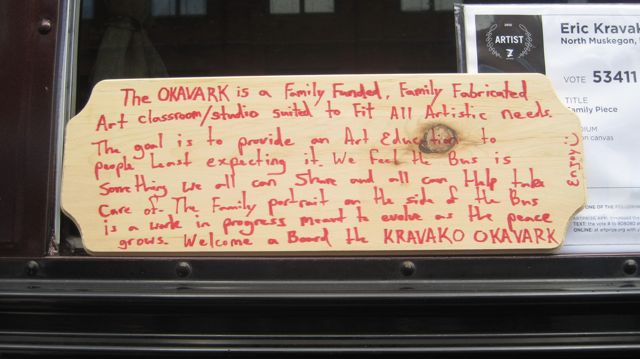 The OKAVARK is a Family Funded, Family Fabricated
Art classroom/studio suited to Fit All Artistic needs.
The goal is to provide an Art Education to
people least expecting it. We Feel the Bus is
Something we all can Share and all can Help take
Care of. The Family portrait on the side of the Bus
is a work in progress meant to evolve as the peace
grows. Welcome a Board the KRAVAKO OKAVARK
ARTIST
Eric Kravak
North Muskegon,
VOTE 53411
TITLE
Family Piece
DIUM
on canvas
ONE OF THE FOLLOWING
TEXT: the vote # to 808080
ONLINE: at artprize.org with y